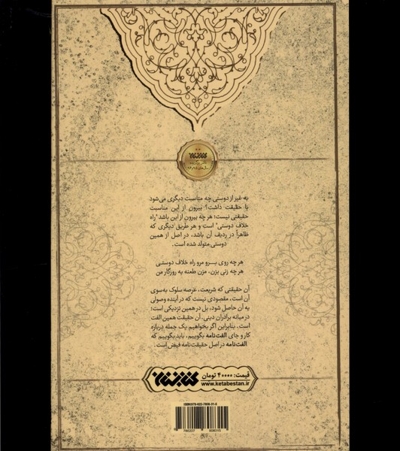 به غیر از دوستی چه مناسبت دیگری می‌شود
با حقیقت داشت؟ بیرون از این مناسبت
حقیقتی نیست؛ هر چه بیرون از این باشد "راه
خلاف دوستی" است و هر طریق دیگری که
ظاهراً در ردیف آن باشد، در اصل از همین
دوستی متولد شده است.
هر چه روی برو مرو راه خلاف دوستی
هر چه زنی بزن، مزن طعنه به روزگار من
آن حقیقتی که شریعت، عرصه سلوک به‌سوی
آن است، مقصودی نیست که در آینده وصولی
به آن حاصل شود، بل در همین نزدیکی است؛
در میانه برادران دینی. آن حقیقت همین الفت
است. بنابراین اگر بخواهیم یک جمله درباره
کار و جای الفت‌نامه بگوییم، باید بگوییم که
الفت‌نامه در اصل حقیقت‌نامه فیض است.
قیمت: ۴۰۰۰۰ تومان
www.ketabestan.ir